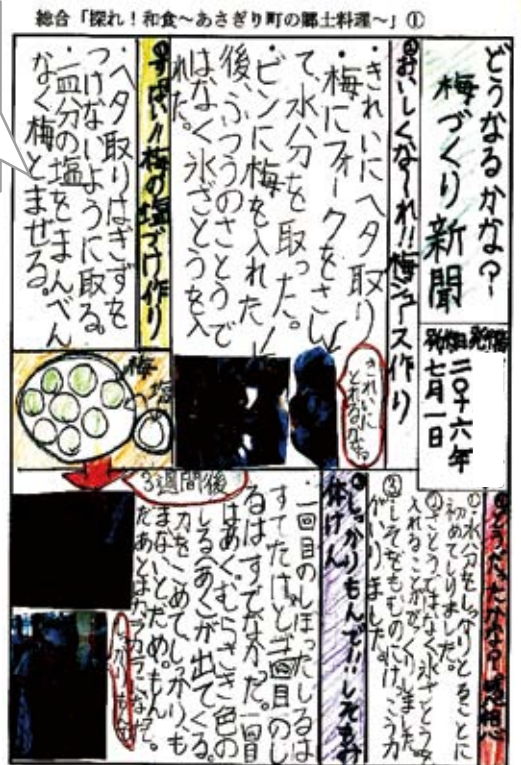 総合「探れ！和食～あさぎり町の郷土料理～」①
どうなるかな？
梅づくり新聞
二〇十六年
七月一日
①おいしくな～れ!!梅ジュース作り
・きれいにヘタ取り
・梅にフォークをさし
て、水分を取った。
・ビンに梅を入れた
後、ふつうのさとうで
はなく氷ざとうを入
れた。
きれいに
とれるかな。
②すっぱい!!梅の塩づけ作り
・ヘタ取りはきずを
つけないように取る。
・皿分の塩をまんべん
なく梅とまぜる。
梅
塩
3週間後
③しっかりもんで!!しそもみ
体けん
・一回目のしぼったしるは
すてたけど二回目のし
るはすてなかった。一回目
はあく。むらさき色の
しる(あく)が出てくる。
力をこめて、しっかりも
まないとだめ。もん
だあとはカラカラになって。
④どうだったかな？感想
①・水分をしっかりとることに
初めてしりました。
②さとうではなく氷ざとうを
入れることがびっくりしました。
③しそをもむのにけっこう力
がいりました。